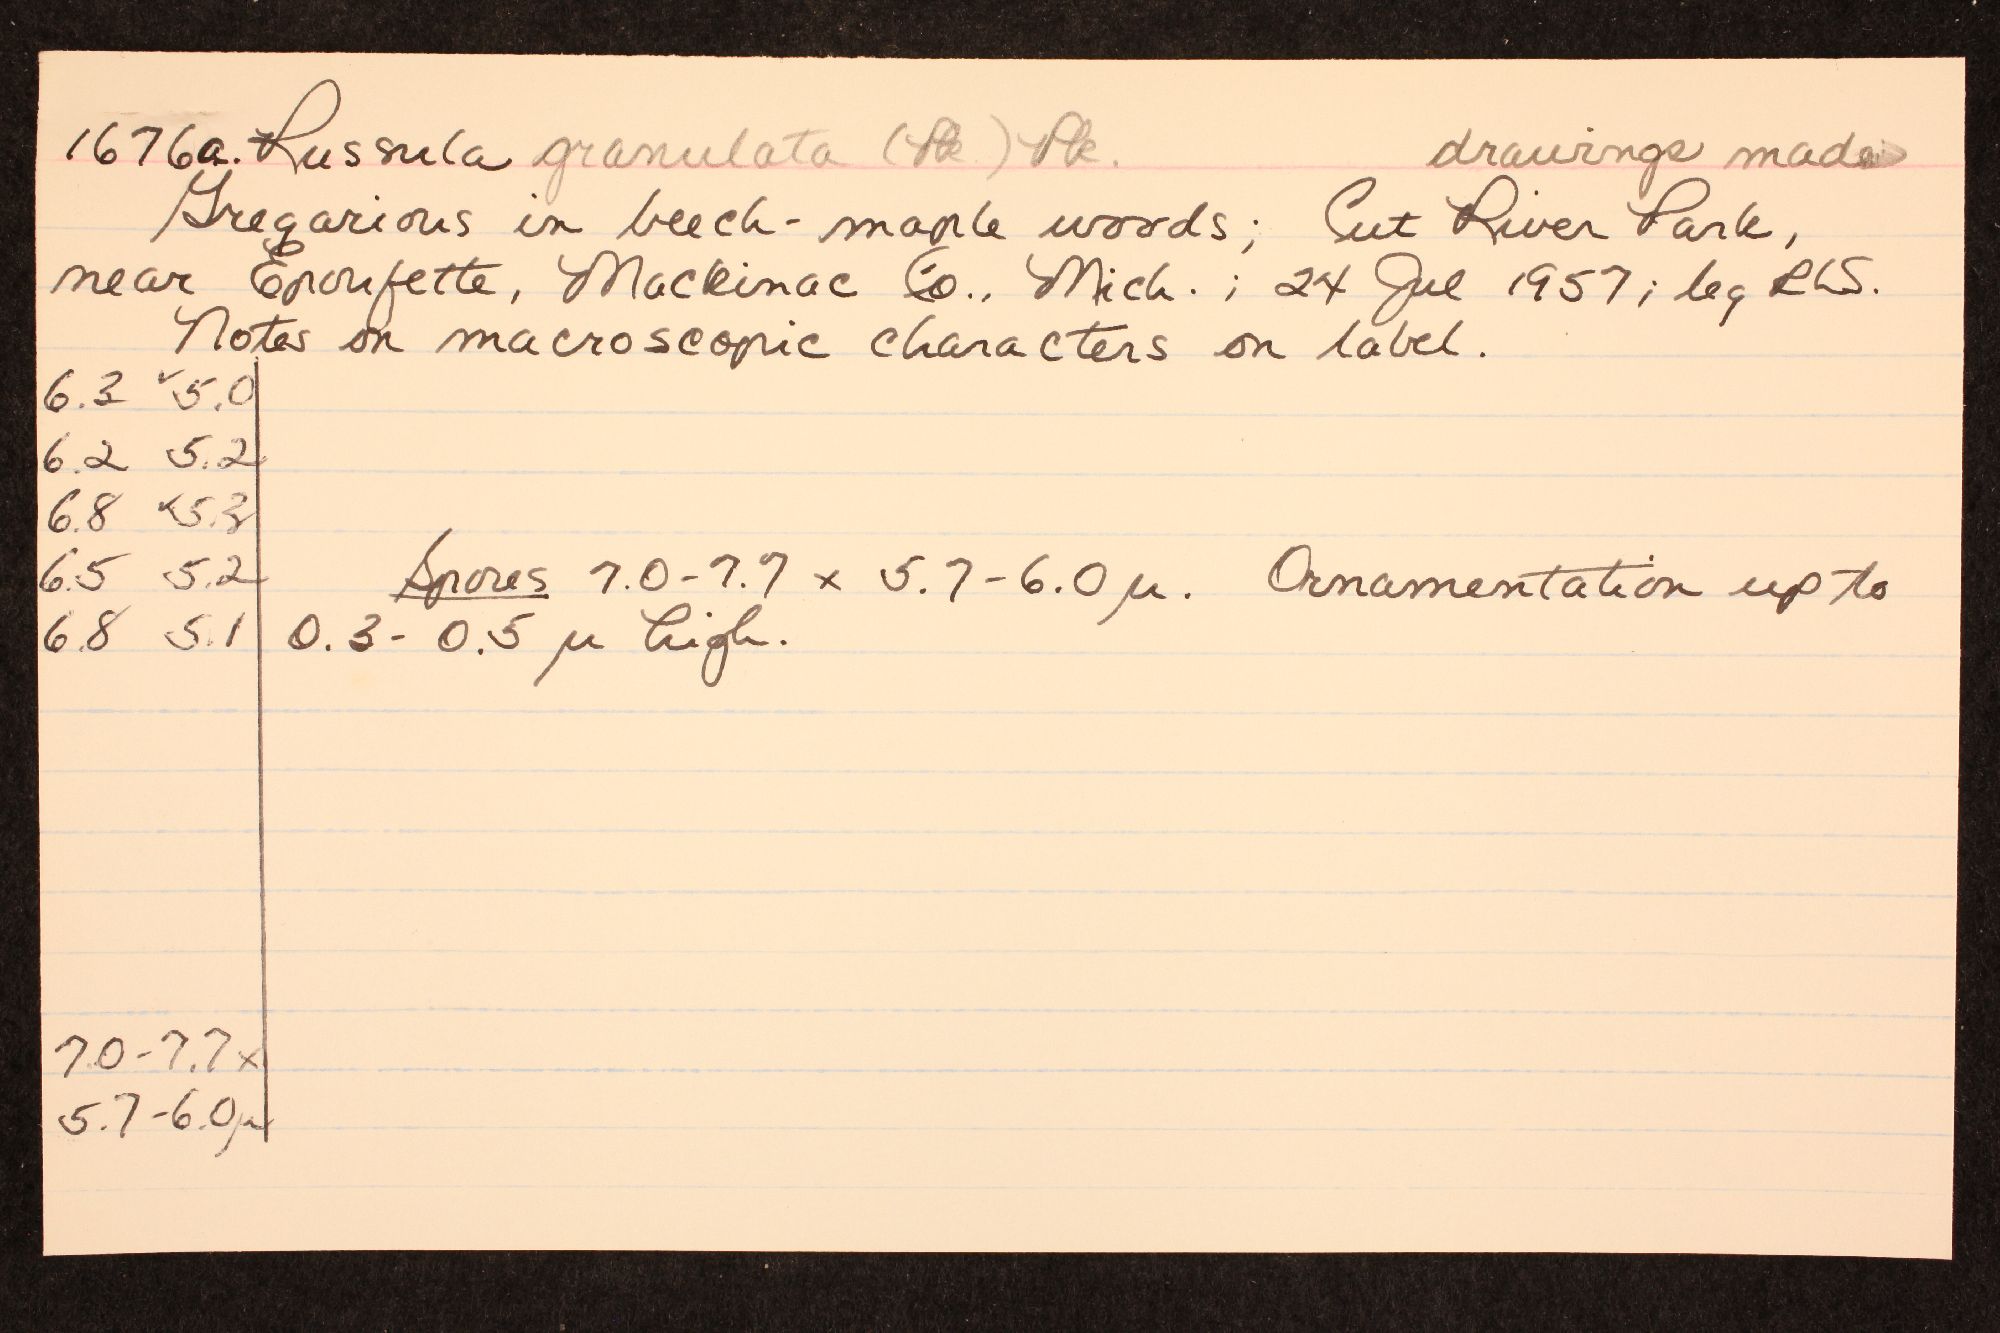 1676a. Russula granulata (Pk.) Pk. drawings made
Gregarious in beech-maple woods; Cut River Park,
near Epoufette, Mackinac Co., Mich.; 24 Jul 1957; leg RLS.
Notes on macroscopic characters on label.
6.3 x 5.0
6.2 5.2
6.8 x 5.3
6.5 5.2
Spores 7.0-7.7 x 5.7-6.0 µ. Ornamentation up to
6.8 5.1
0.3-0.5 µ high.
7.0-7.7 x
5.7-6.0 µ